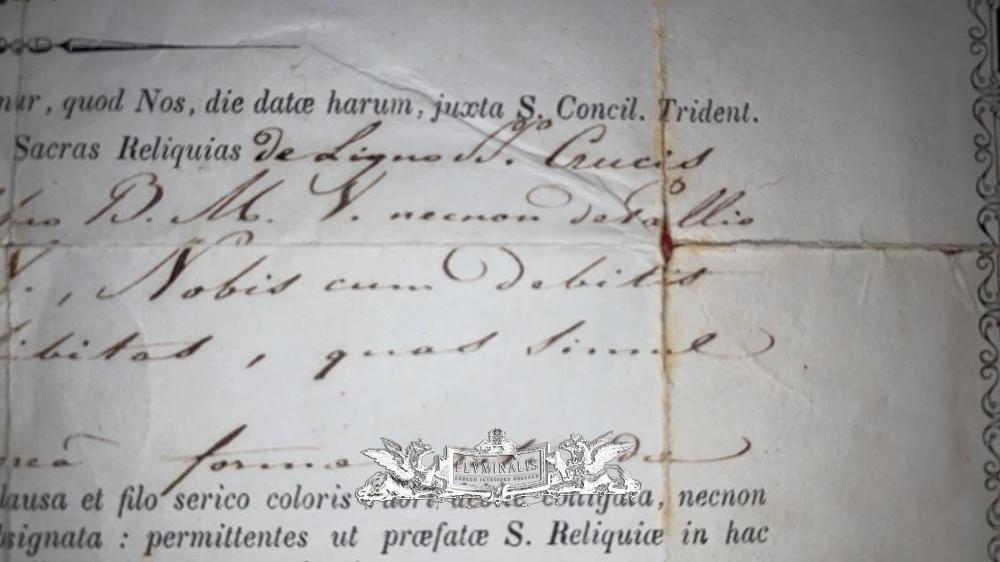 quod Nos, die datæ harum, juxta S. Concil. Trident.
Sacras Reliquias de Ligno S. Crucis
B. M. V. necnon de Pallio
V., Nobis cum Debitis
quas simul
forma
FLVMINALIS
et filo serico coloris contigata, necnon
signata : permittentes ut præfatæ S. Reliquiæ in hac